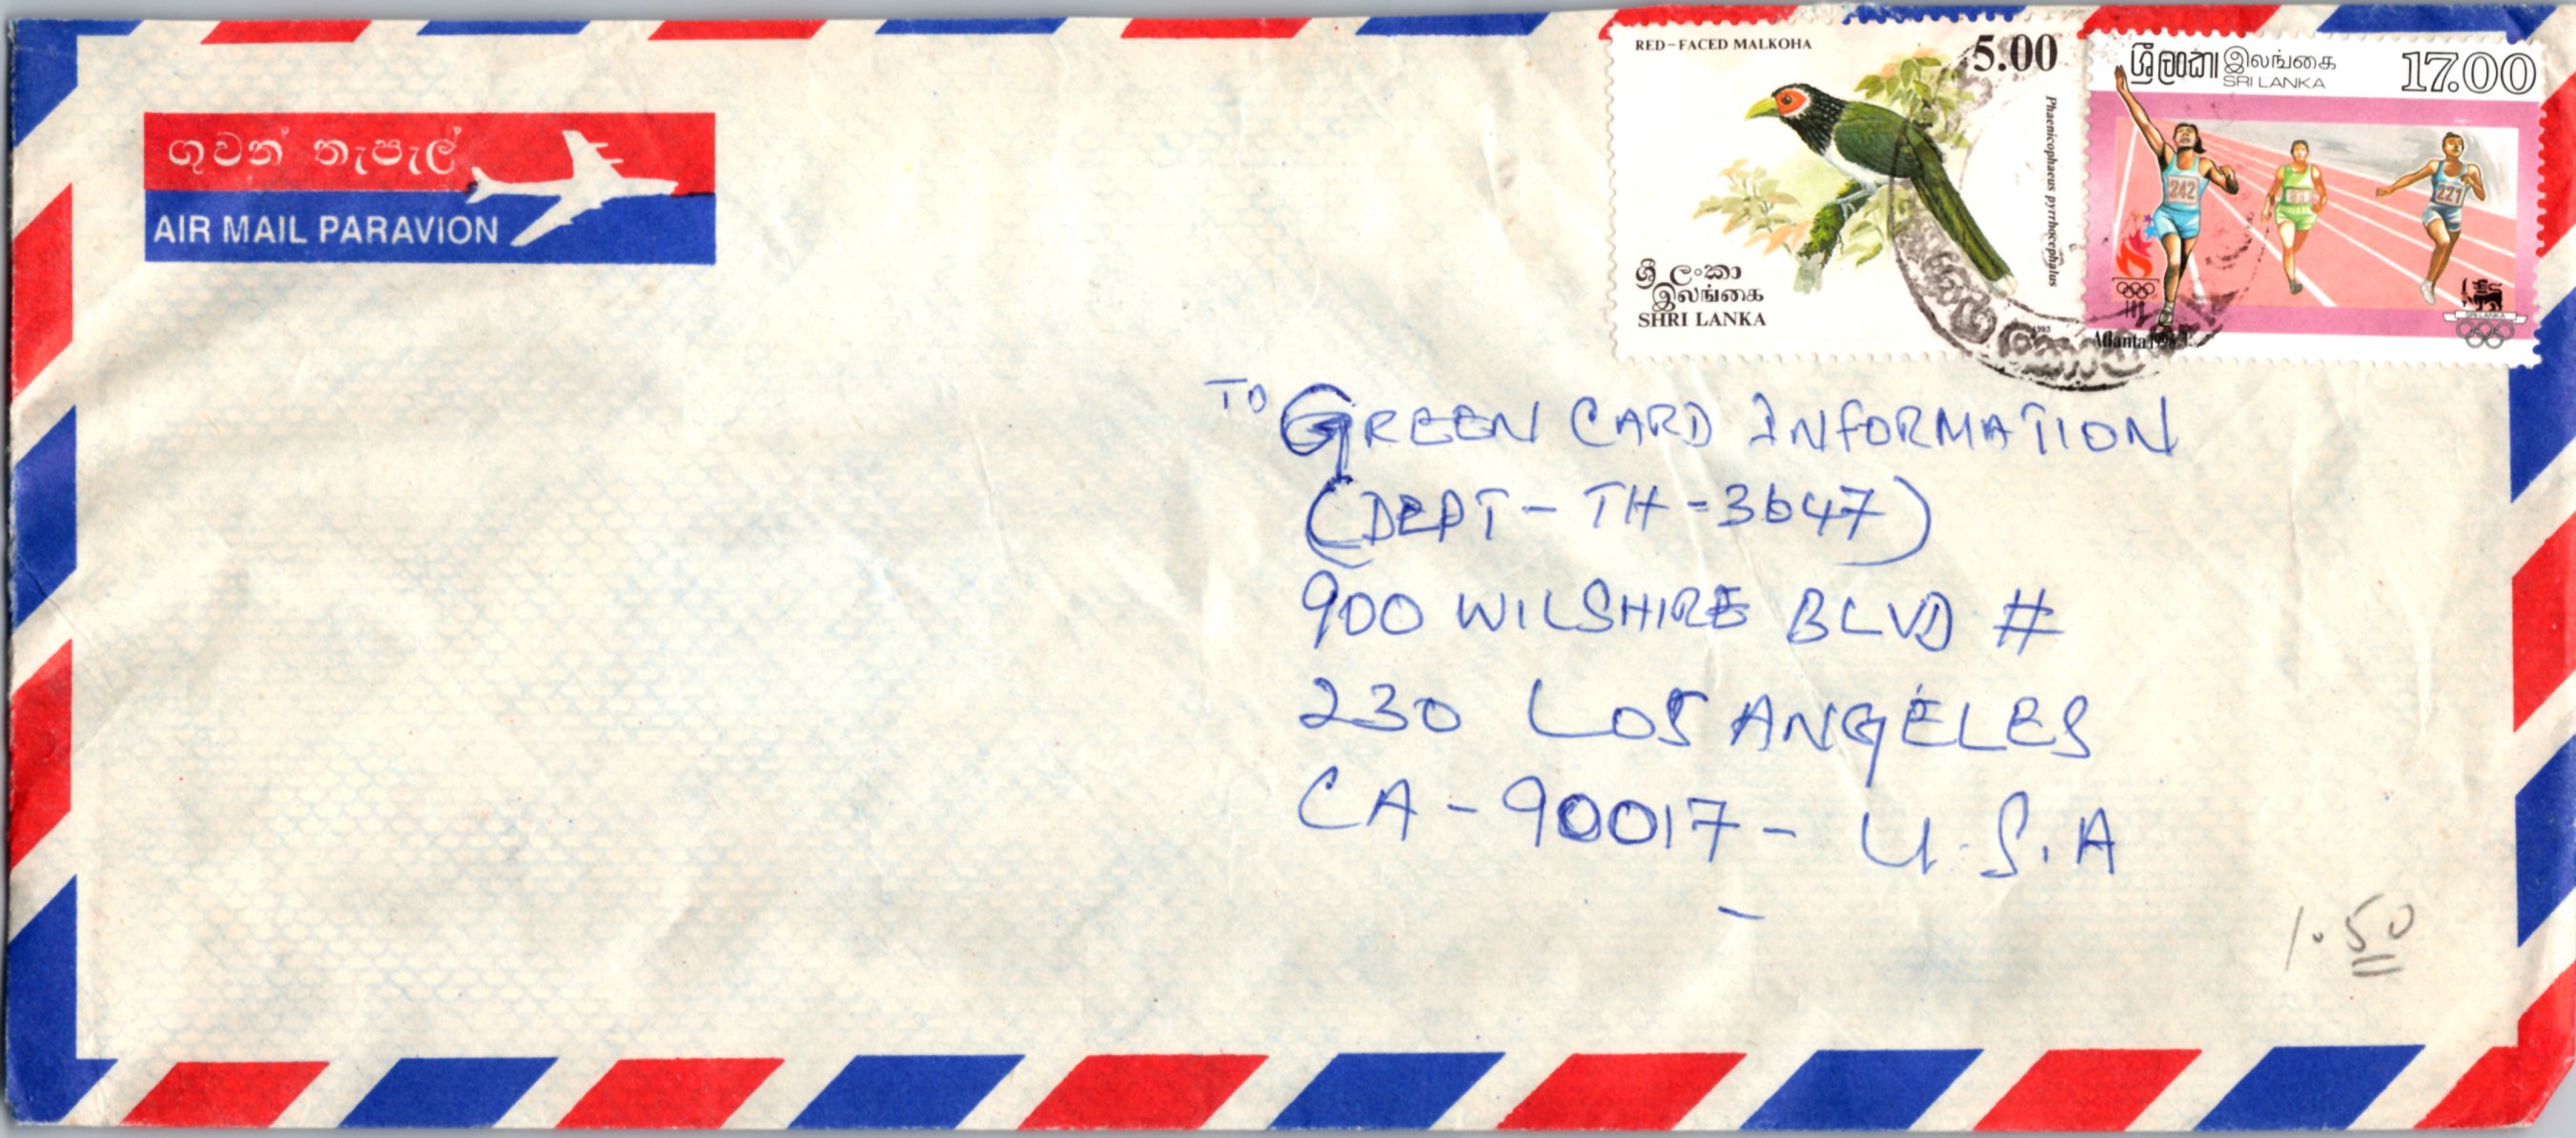 ගුවන් තැපැල්
AIR MAIL PARAVION
RED-FACED MALKOHA
5.00
Phaenicophaeus pyrrhocephalus
ශ්‍රී ලංකා
இலங்கை
SHRI LANKA
1993
ශ්‍රී ලංකා இலங்கை
SRI LANKA
17.00
242
221
Atlanta 1996
SRI LANKA
TO GREEN CARD INFORMATION
(DEPT - TH - 3647)
900 WILSHIRE BLVD #
230 LOS ANGELES
CA - 90017 - U.S.A
1.50